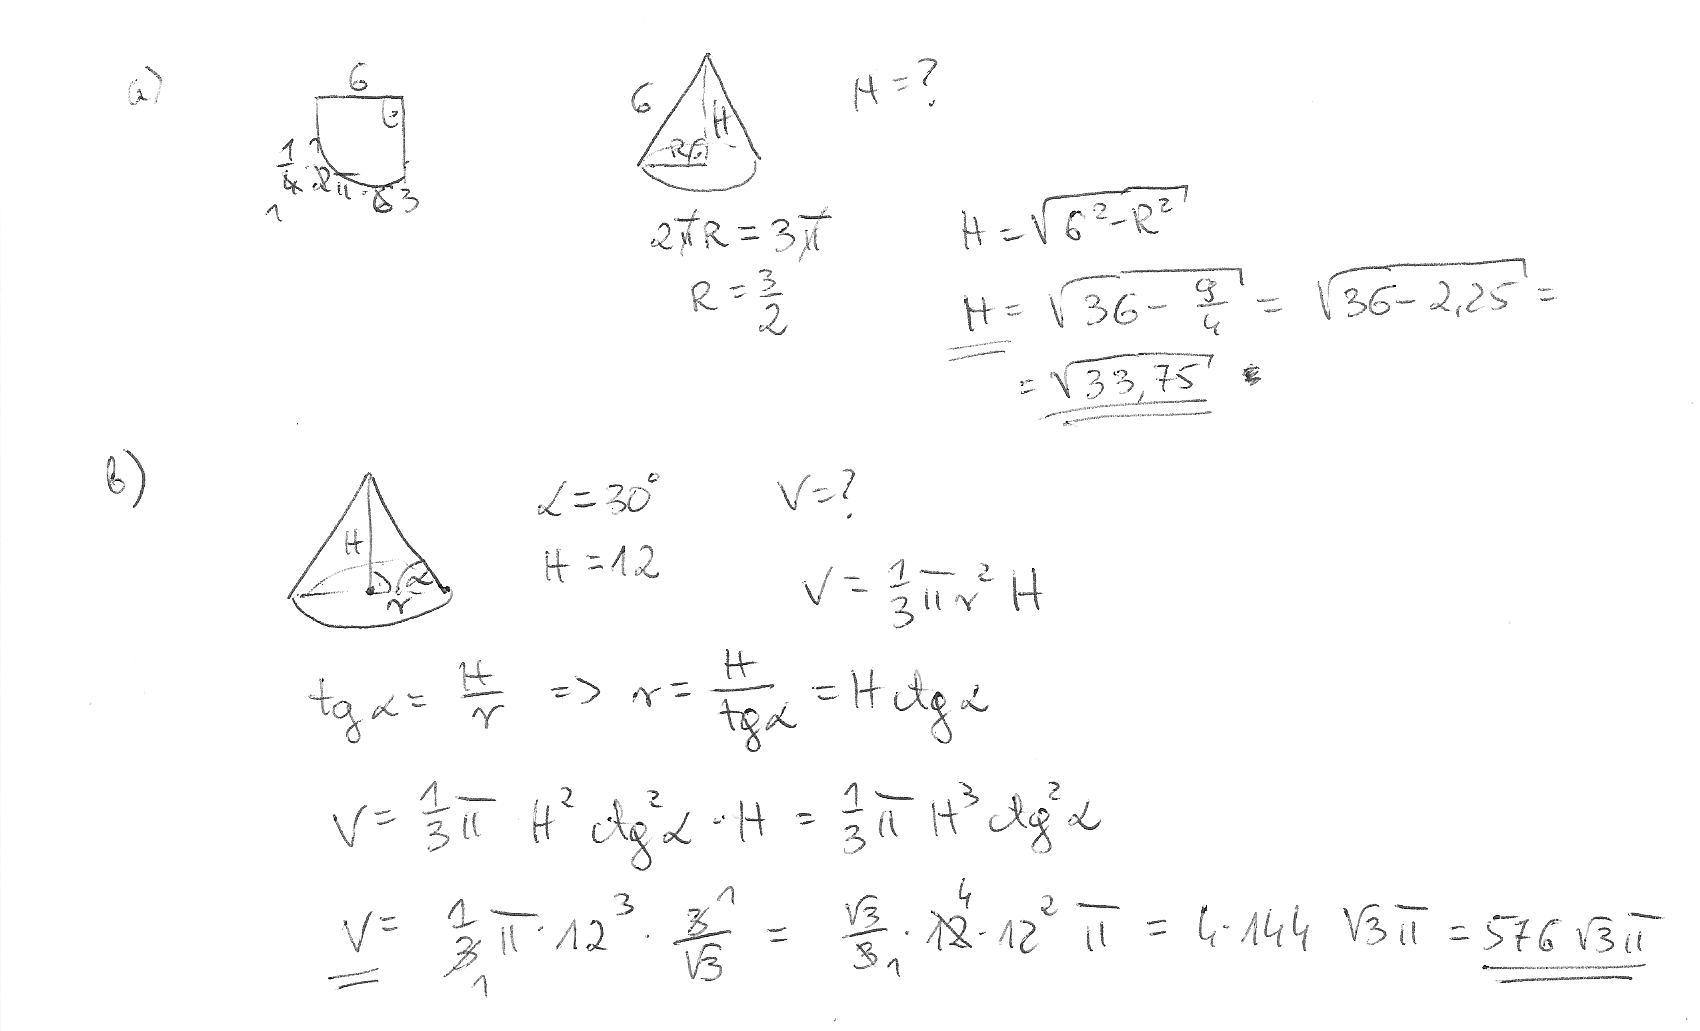 a)
6
1/4 · 2π · 6 3
1
6
H
R
H = ?
2πR = 3π
R = 3/2
H = √(6² - R²)
H = √(36 - 9/4) = √(36 - 2,25) =
= √33,75
b)
H
r
α
α = 30°
H = 12
V = ?
V = 1/3 π r² H
tg α = H/r => r = H/tg α = H ctg α
V = 1/3 π H² ctg² α · H = 1/3 π H³ ctg² α
V = 1/3 π · 12³ · 3/√3 = √3/3 · 12 · 12² π = 4 · 144 √3 π = 576 √3 π